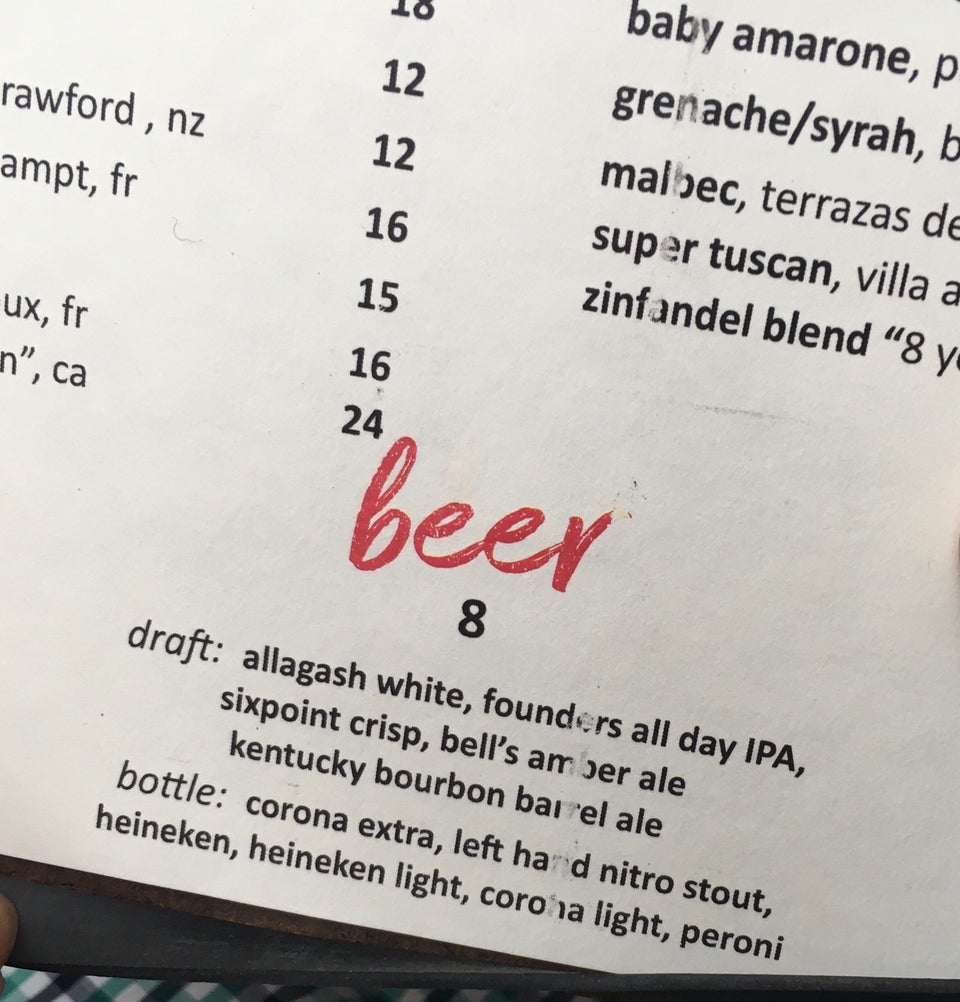 18
12
rawford , nz
12
ampt, fr
16
15
ux, fr
16
n”, ca
24
baby amarone, p
grenache/syrah, b
malbec, terrazas de
super tuscan, villa a
zinfandel blend “8 ye
beer
8
draft: allagash white, founders all day IPA,
sixpoint crisp, bell’s amber ale
kentucky bourbon barrel ale
bottle: corona extra, left hand nitro stout,
heineken, heineken light, corona light, peroni